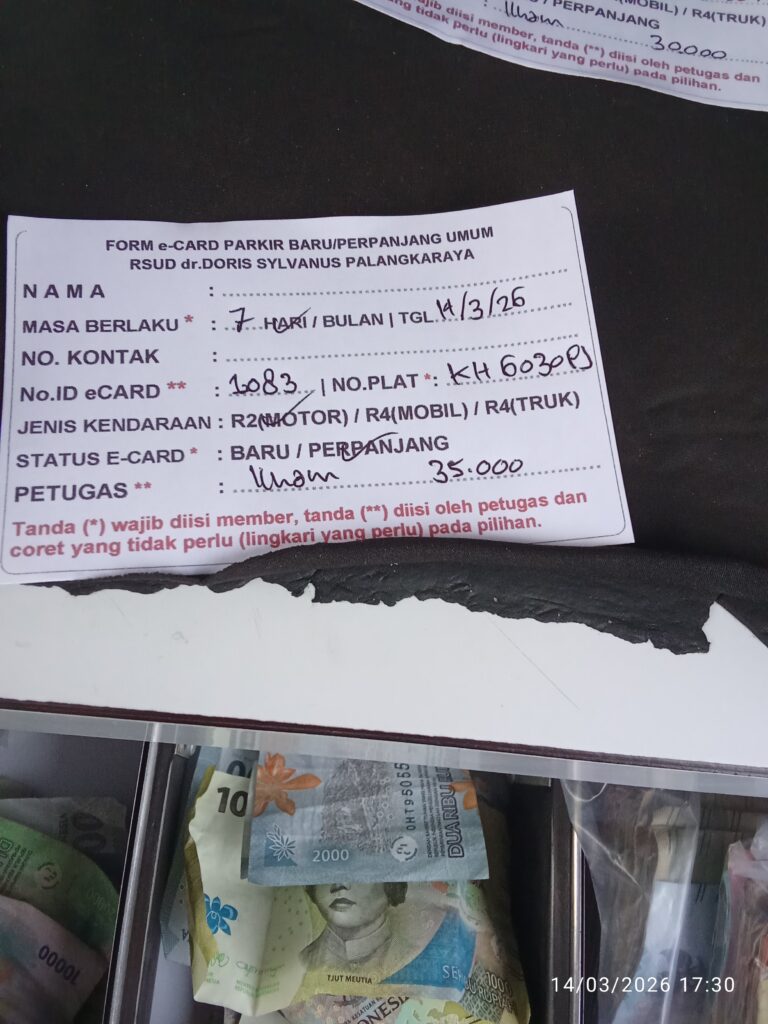 MOBIL) / R4(TRUK)
: PERPANJANG
: Ilham 30.000
wajib diisi member, tanda (**) diisi oleh petugas dan
tidak perlu (lingkari yang perlu) pada pilihan.
FORM e-CARD PARKIR BARU/PERPANJANG UMUM
RSUD dr.DORIS SYLVANUS PALANGKARAYA
N A M A :
MASA BERLAKU * : 7 HARI / BULAN | TGL 14/3/26
NO. KONTAK :
No.ID eCARD ** : 1083 | NO.PLAT *: KH 6030 PJ
JENIS KENDARAAN : R2(MOTOR) / R4(MOBIL) / R4(TRUK)
STATUS E-CARD * : BARU / PERPANJANG
PETUGAS ** : Ilham 35.000
Tanda (*) wajib diisi member, tanda (**) diisi oleh petugas dan
coret yang tidak perlu (lingkari yang perlu) pada pilihan.
10
2000
DUA RIBU
TJUT MEUTIA
SE
1000
14/03/2026 17:30